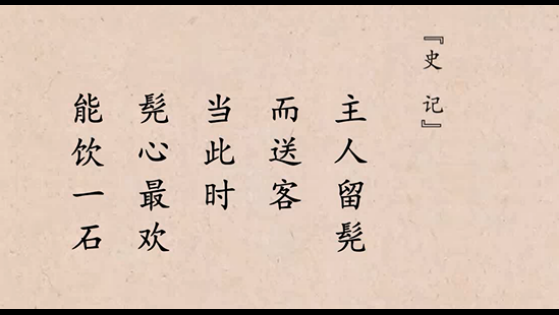 『史记』
主人留髡
而送客
当此时
髡心最欢
能饮一石